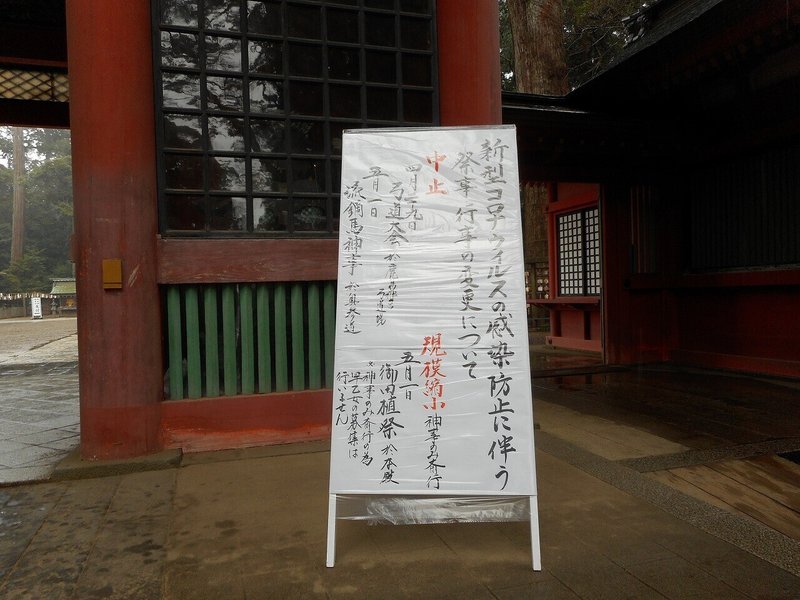 新型コロナウィルスの感染防止に伴う
祭事・行事の変更について
中止
四月二九日
弓道大会
五月一日
流鏑馬神事 於奥参道
規模縮小 神事のみ斎行
五月一日
御田植祭 於本殿
※神事のみ斎行の為
早乙女の募集は
行いません